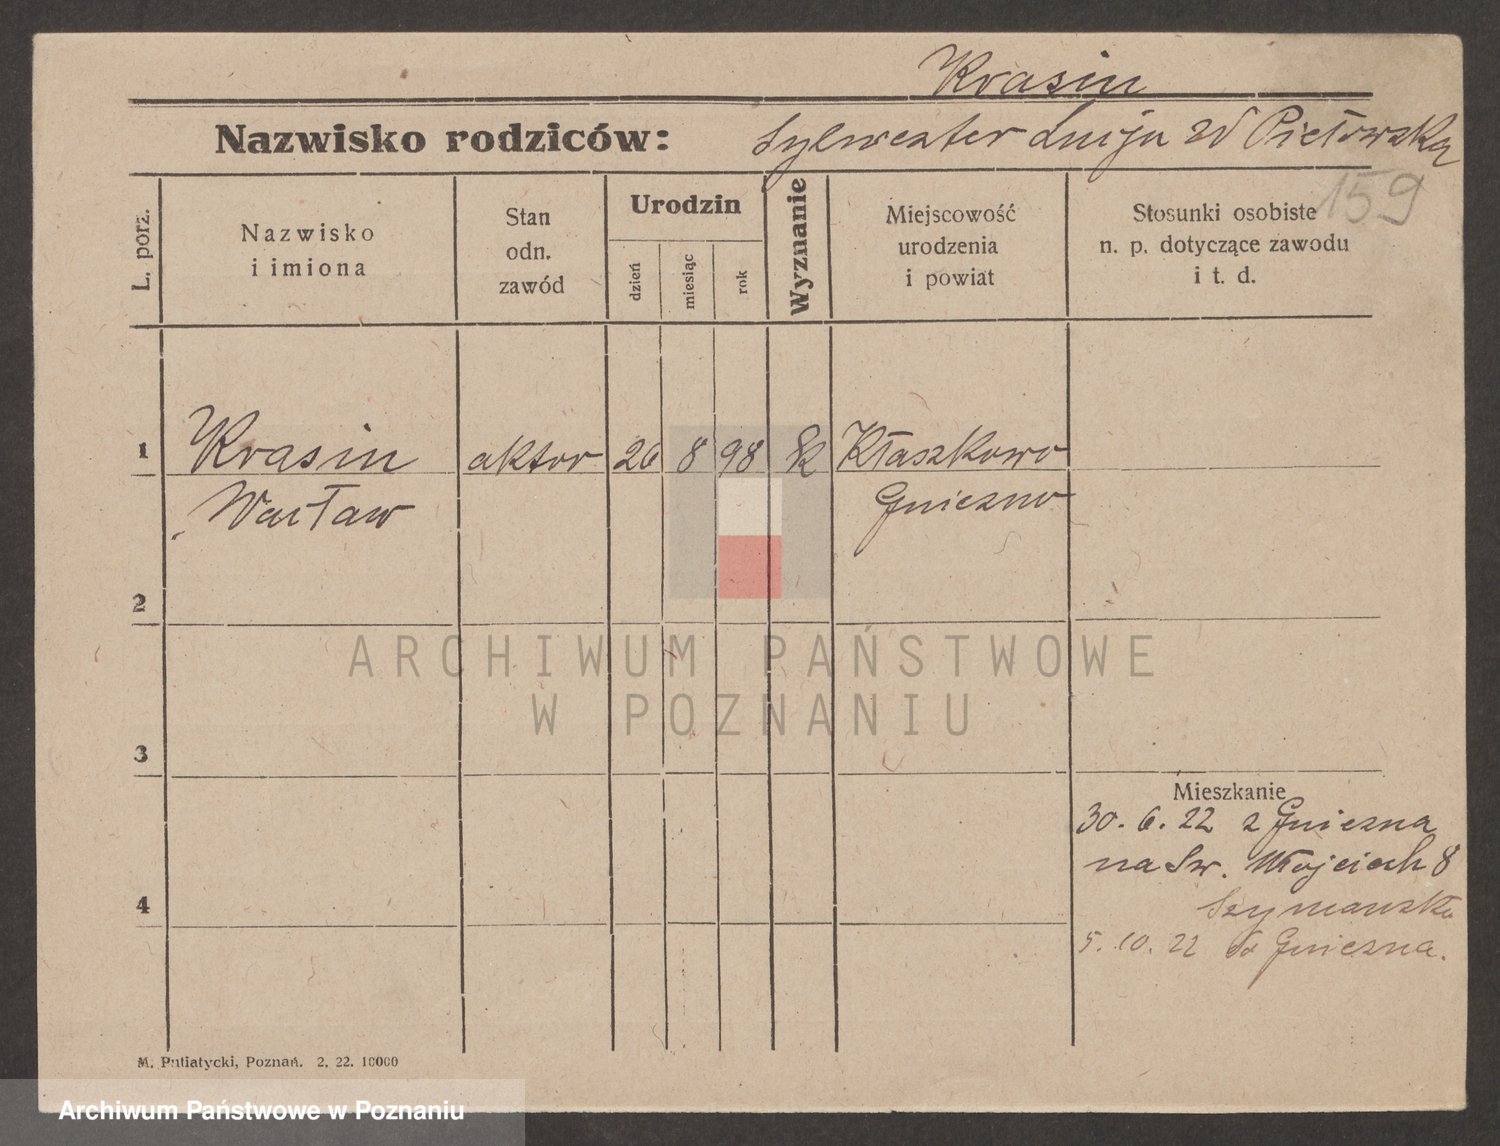 Krasin
Nazwisko rodziców: Sylwester Łucja zd Pietowska
159
L. porz.
Nazwisko
i imiona
Stan
odn.
zawód
Urodzin
dzień
miesiąc
rok
Wyznanie
Miejscowość
urodzenia
i powiat
Stosunki osobiste
n. p. dotyczące zawodu
i t. d.
1 Krasin aktor 26 8 98 Kłaszkowo
Wacław Gniezno
2
3
Mieszkanie
30. 6. 22 z Gniezna
na Św. Wojciech 8
4
Szymańska
5. 10. 22 do Gniezna.
M. Putiatycki, Poznań. 2. 22. 10000
ARCHIWUM PAŃSTWOWE
W POZNANIU
Archiwum Państwowe w Poznaniu